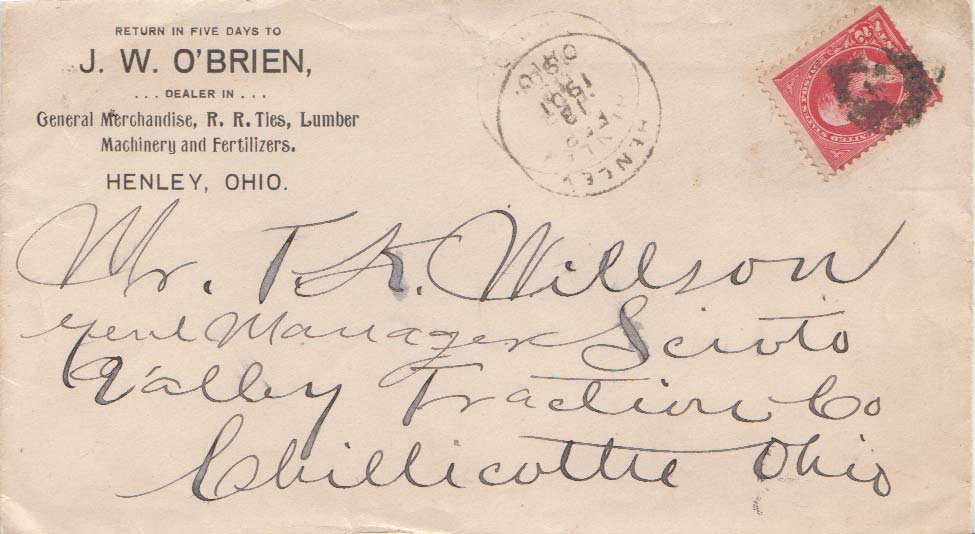 RETURN IN FIVE DAYS TO
J. W. O'BRIEN,
... DEALER IN ...
General Merchandise, R. R. Ties, Lumber
Machinery and Fertilizers.
HENLEY, OHIO.
HENLEY
OHIO.
FEB
13
1901
Mr. T. K. Willson
Genl Manager Scioto
Valley Traction Co
Chillicothe Ohio